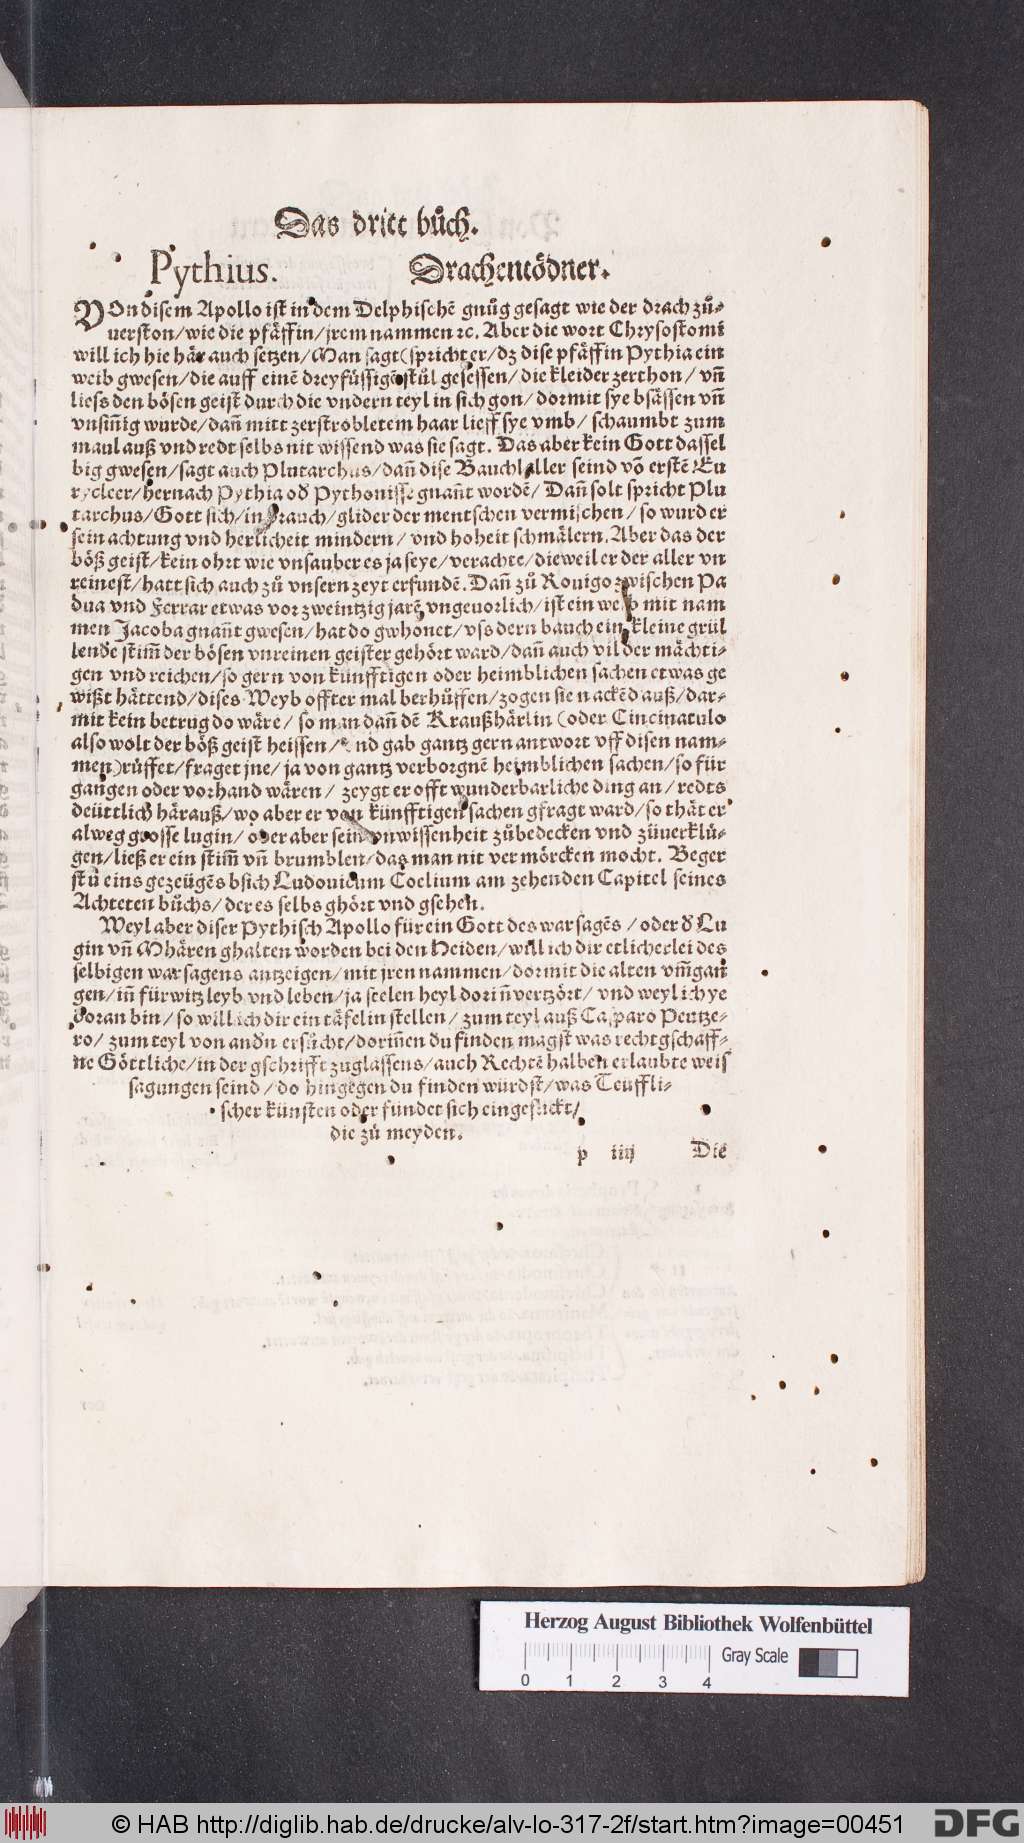 Das dritt bůch.
Pythius. Drachentödner.
VOn disem Apollo ist in dem Delphischẽ gnůg gesagt wie der drach zů-
uerston/wie die pfäffin/jrem nammen ꝛc. Aber die wort Chrysostomi
will ich hie här auch setzen/Man sagt(spricht er/dz dise pfäffin Pythia ein
weib gwesen/die auff einẽ dreyfüssigẽ stůl gesessen/die kleider zerthon/vñ
liess den bösen geist durch die vndern teyl in sich gon/dormit sye bsässen vñ
vnsiñig wurde/dañ mitt zerstrobletem haar lieff sye vmb/schaumbt zum
maul auß vnd redt selbs nit wissend was sie sagt. Das aber kein Gott dassel
big gwesen/sagt auch Plutarchus/dañ dise Bauchlaller seind võ erstẽ Eu
rycleer/hernach Pythia oð Pythonisse gnañt wordẽ/Dañ solt spricht Plu
tarchus/Gott sich/in brauch/glider der mentschen vermischen/so wurd er
sein achtung vnd herlicheit mindern/vnd hoheit schmälern. Aber das der
böß geist/kein ohrt wie vnsauber es ja seye/verachte/dieweil er der aller vn
reinest/hatt sich auch zů vnsern zeyt erfundẽ. Dañ zů Rouigo zwischen Pa
dua vnd Ferrar etwas vor zweintzig jarẽ vngeuorlich/ist ein weib mit nam
men Jacoba gnañt gwesen/hat do gwhonet/vss dern bauch ein kleine grül
lende stim̃ der bösen vnreinen geister gehört ward/dañ auch vil der mächti-
gen vnd reichen/so gern von künfftigen oder heimblichen sachen etwas ge
wißt hättend/dises Weyb offter mal berhüffen/zogen sie nackẽd auß/dar-
mit kein betrug do wäre/so man dañ dẽ Kraußhärlin (oder Cincinatulo
also wolt der böß geist heissen/vnd gab gantz gern antwort vff disen nam-
men)růffet/fraget jne/ja von gantz verborgnẽ heimblichen sachen/so für
gangen oder vorhand wären/zeygt er offt wunderbarliche ding an/redts
deüttlich härauß/wo aber er von künfftigen sachen gfragt ward/so thät er
alweg grosse lugin/oder aber sein vnwissenheit zůbedecken vnd züuerklů-
gen/ließ er ein stim̃ vñ brumblen/das man nit vermörcken mocht. Beger
stu eins gezeügẽs bsich Ludouicum Coelium am zehenden Capitel seines
Achteten bůchs/der es selbs ghört vnd gsehen.
Weyl aber diser Pythisch Apollo für ein Gott des warsagẽs/oder ð Lu
gin vñ Mhären ghalten worden bei den Heiden/will ich dir etlicherlei des
selbigen warsagens antzeigen/mit jren nammen/dormit die alten vm̃gan
gen/iñ fürwitz leyb vnd leben/ja seelen heyl doriñ vertzört/vnd weyl ich ye
doran bin/so will ich dir ein täfelin stellen/zum teyl auß Casparo Peutze-
ro/zum teyl von andn ersůcht/doriñen du finden magst was rechtgschaff-
ne Göttliche/in der gschrifft zuglassens/auch Rechtẽ halben erlaubte weis
sagungen seind/do hingegen du finden würdst/was Teuffli-
scher künsten oder fündet sich eingeflickt/
die zů meyden.
p iiij Die
Herzog August Bibliothek Wolfenbüttel
Gray Scale
0 1 2 3 4
© HAB http://diglib.hab.de/drucke/alv-lo-317-2f/start.htm?image=00451
DFG